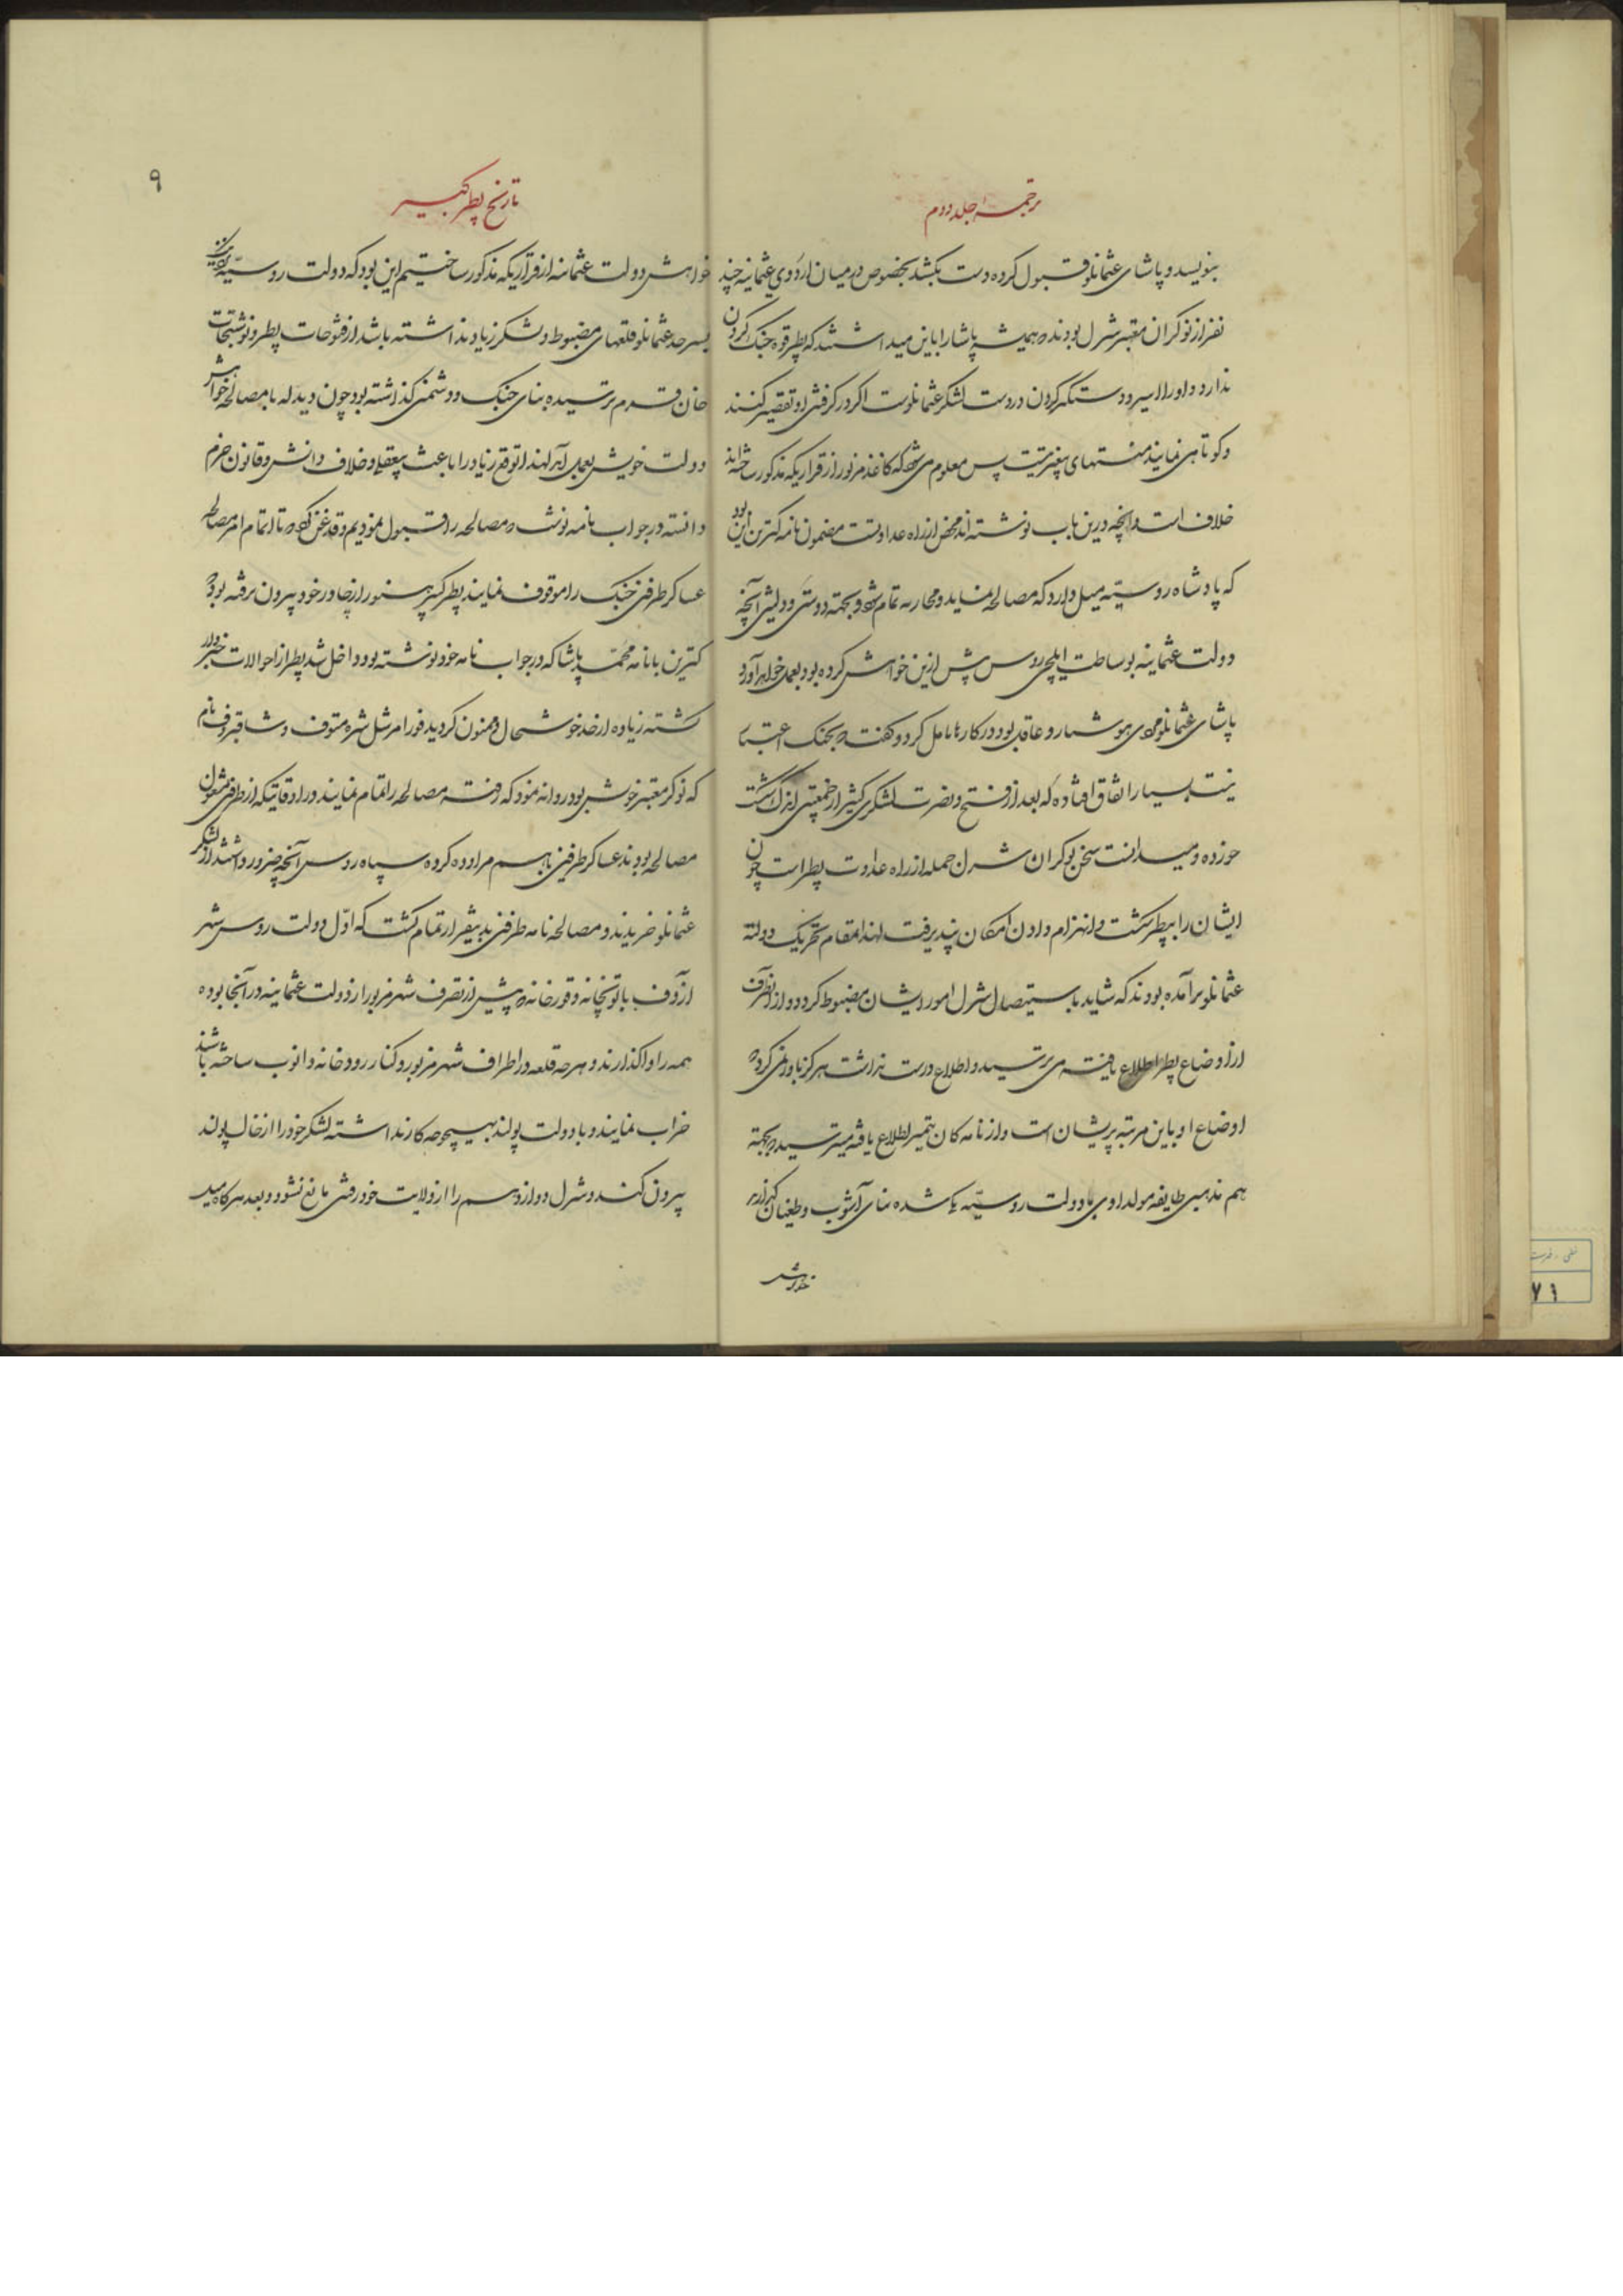 ترجمه جلد دوم
بنویسد و پاشای عثمانلو قبول کرده دست بکشد بخصوص در میان اردوی عثمانیه چند
نفر از نوکران معتبر شرل بودند که همیشه پاشا را باین میداشتند که پطر قوه جنک کردن
ندارد و او را اسیر و دستگیر کردن در دست لشکر عثمانلوست اگر در گرفتن او تقصیر کنند
و کوتاهی نمایند منتهای بیغیرتیست پس معلوم میشود که کاغذ مزبور از قراریکه مذکور ساخته‌اند
خلاف است و آنچه درین باب نوشته‌اند محض از راه عداوتست مضمون نامه کترین این بود
که پادشاه روسیّه میل دارد که مصالحه نماید و محاربه تمام شود و بجهته دوستی دولتین آنچه
دولت عثمانیه بوساطت ایلچی روس پیش ازین خواهش کرده بود بعمل خواهد آورد
پاشای عثمانلو مردی هوشیار و عاقل بود در کارها تامل کرد و گفت که بجنک اعتباری
نیست بسیار اتفاق افتاده که بعد از فتح و نصرت لشکری کثیر از جمعیتی اندک شکست
خورده و میدانست سخن نوکران شرل جمله از راه عداوت پطر است چون
ایشان را بپطر شکست و انهزام دادن امکان نپذیرفت لهذا بمقام تحریک دولت
عثمانلو برآمده بودند که شاید باستیصال شرل امور ایشان مضبوط گردد و از آنطرف
از اوضاع پطر اطلاع یافته می‌ترسید و اطلاع درست نداشت هرگز باور نمی‌کرد که
اوضاع او باین مرتبه پریشان است و از نامه کان تمیر اطلاع یافته میترسید که بجهة
هم مذهبی طایفه مولداوی با دولت روسیّه یک شده بنای آشوب و طغیان گذارند
خواهش
تاریخ پطر کبیر
۹
خواهش دولت عثمانیه از قراریکه مذکور ساختیم این بود که دولت روسیّه در نزدیکی
بسرحد عثمانلو قلعهای مضبوط و لشکر زیاد نداشته باشد از فتوحات پطر و نوشتجات
خان قرم ترسیده بنای جنک و دشمنی گذاشته بود چون دید که با مصالحه خواهش
دولت خویش بعمل آید لهذا توقع زیاد را باعث بیعقلی و خلاف دانش و قانون حزم
دانسته در جواب نامه نوشت که مصالحه را قبول نمودیم و قدغن کرد که تا اتمام امر مصالحه
عساکر طرفین جنک را موقوف نمایند پطر کبیر هنوز از چادر خود بیرون نرفته بود که
کترین با نامه محمّد پاشا که در جواب نامه خود نوشته بود داخل شد پطر از احوالات خبردار
گشته زیاده از حد خوشحال و ممنون گردید فورا مرشل شره متوف و شافیروف نام
که نوکر معتبر خوش بود روانه نمود که رفته مصالحه را تمام نمایند در اوقاتیکه از طرفین مشغول
مصالحه بودند عساکر طرفین باهم مراوده کرده سپاه روس آنچه ضرور داشتند از لشکر
عثمانلو خریدند و مصالحه نامه طرفین بدینقرار تمام گشت که اوّل دولت روس شهر
ازوف با توپخانه و قورخانه که پیش از تصرف شهر مزبور از دولت عثمانیه در آنجا بوده
همه را واگذارند و هر چه قلعه در اطراف شهر مزبور و کنار رودخانه دانوب ساخته باشند
خراب نمایند و با دولت پولند بهیچوجه کار نداشته لشکر خود را از خاک پولند
بیرون کنند و شرل دوازدهم را از ولایت خود رفتن مانع نشود و بعد هرگاه میل